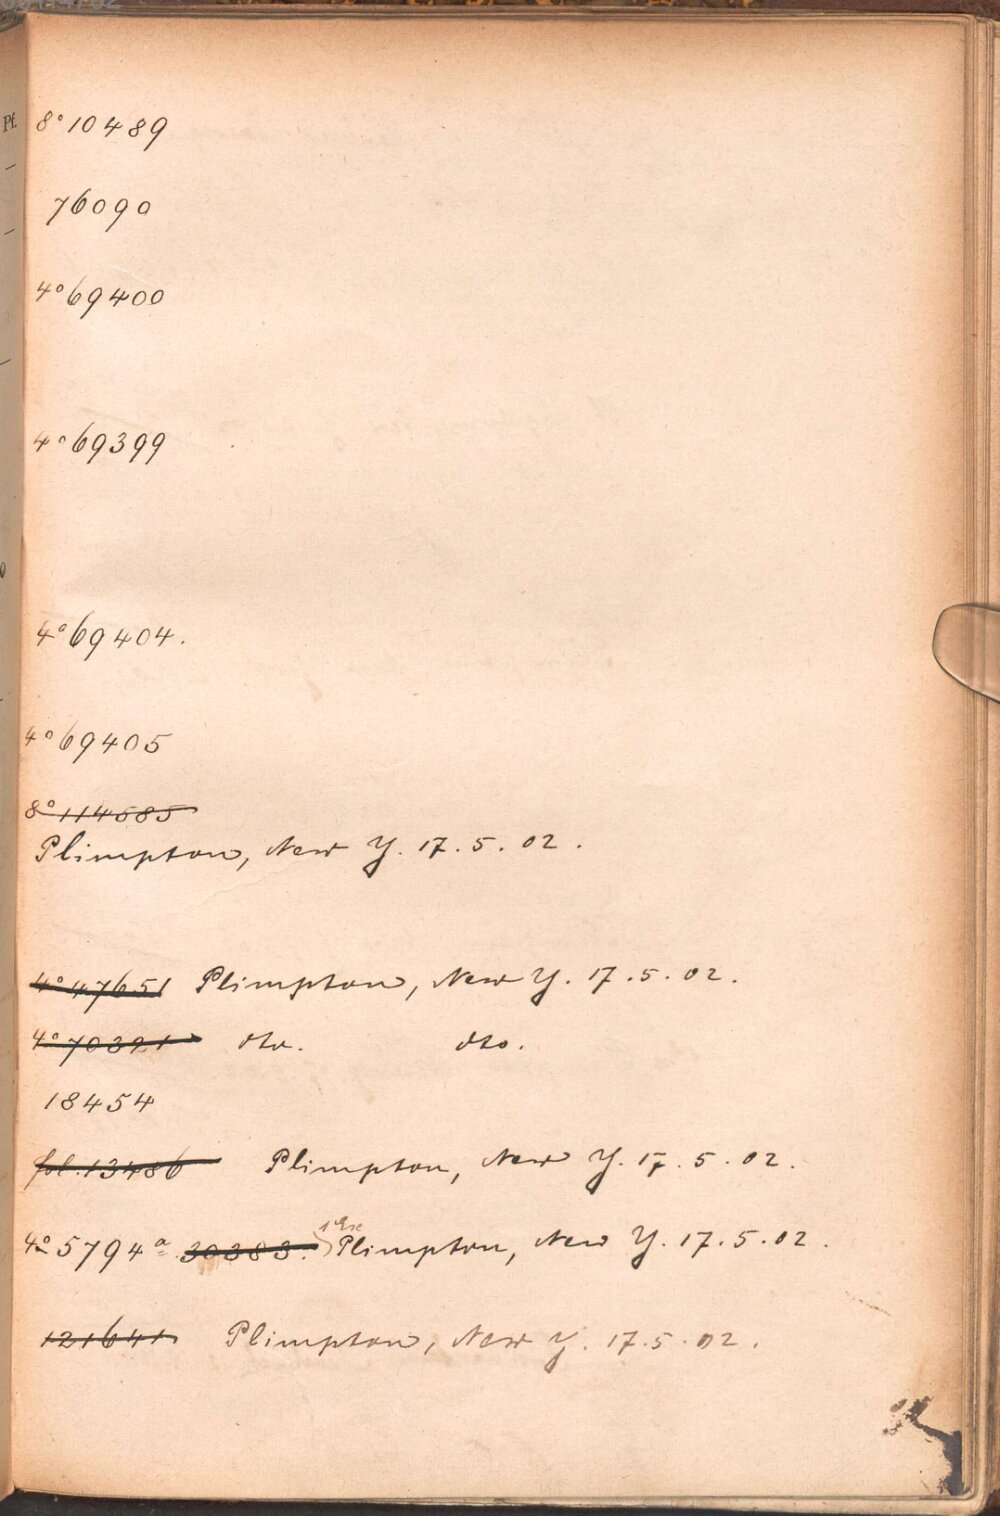 Pf.
8° 10489
76090
4° 69400
4° 69399
4° 69404.
4° 69405
8° 114585
Plimpton, New Y. 17.5.02.
4° 47651 Plimpton, New Y. 17.5.02.
4° 70321 dto. dto.
18454
fol. 13486 Plimpton, New Y. 17.5.02.
4° 5794a 30383. Plimpton, New Y. 17.5.02.
121641 Plimpton, New Y. 17.5.02.